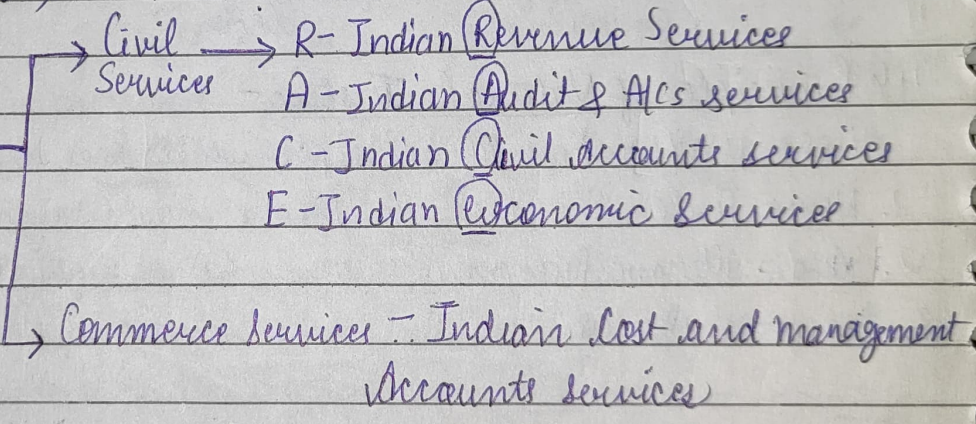 Civil → R- Indian Revenue Services
Services A - Indian Audit & A/Cs services
C - Indian Civil Accounts services
E - Indian economic Services
→ Commerce services - Indian Cost and management
Accounts services